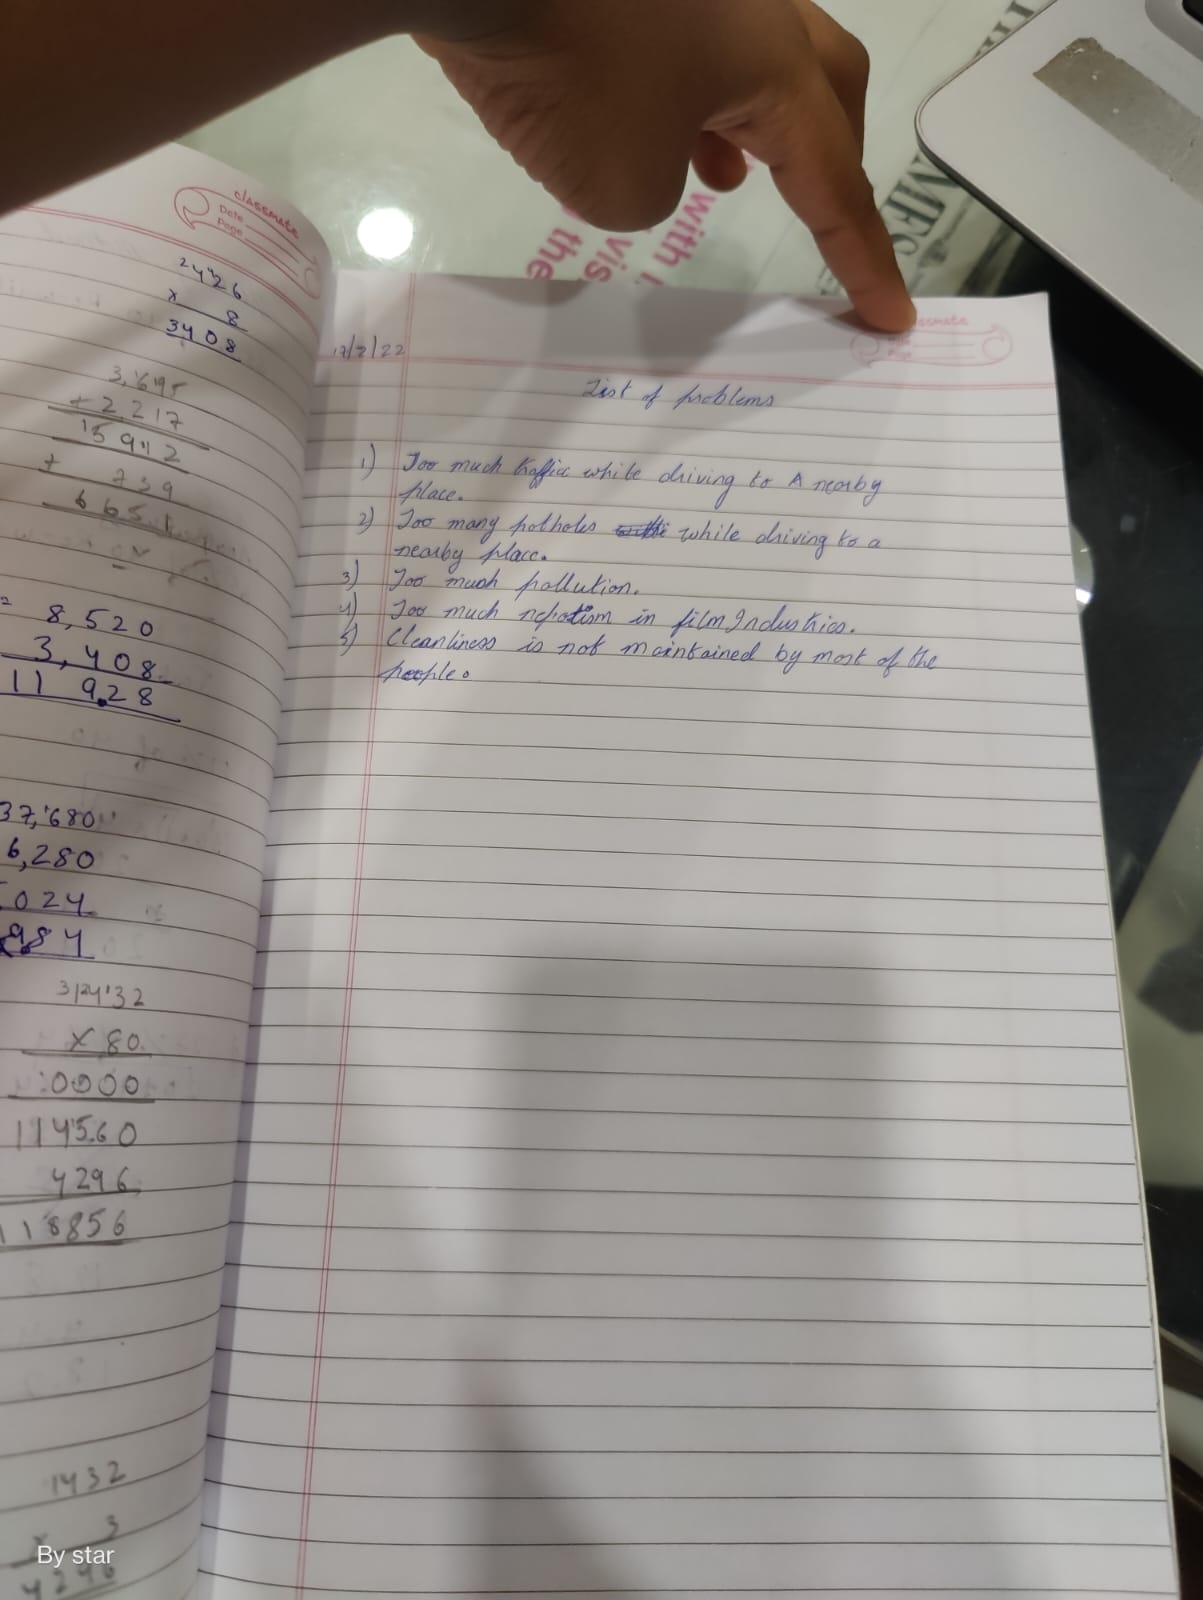 classmate
Date
Page
2426
x 8
3408
3,695
+ 2,217
15912
+ 739
6651
8,520
3,408
11 928
37,680
6,280
024
984
32432
x 80
0000
114560
4296
118856
1432
x 3
4296
17/2/22
List of problems
1) Too much traffic while driving to A nearby
place.
2) Too many potholes while driving to a
nearby place.
3) Too much pollution.
4) Too much nepotism in film Industries.
5) Cleanliness is not maintained by most of the
people.
with
vis
the
By star